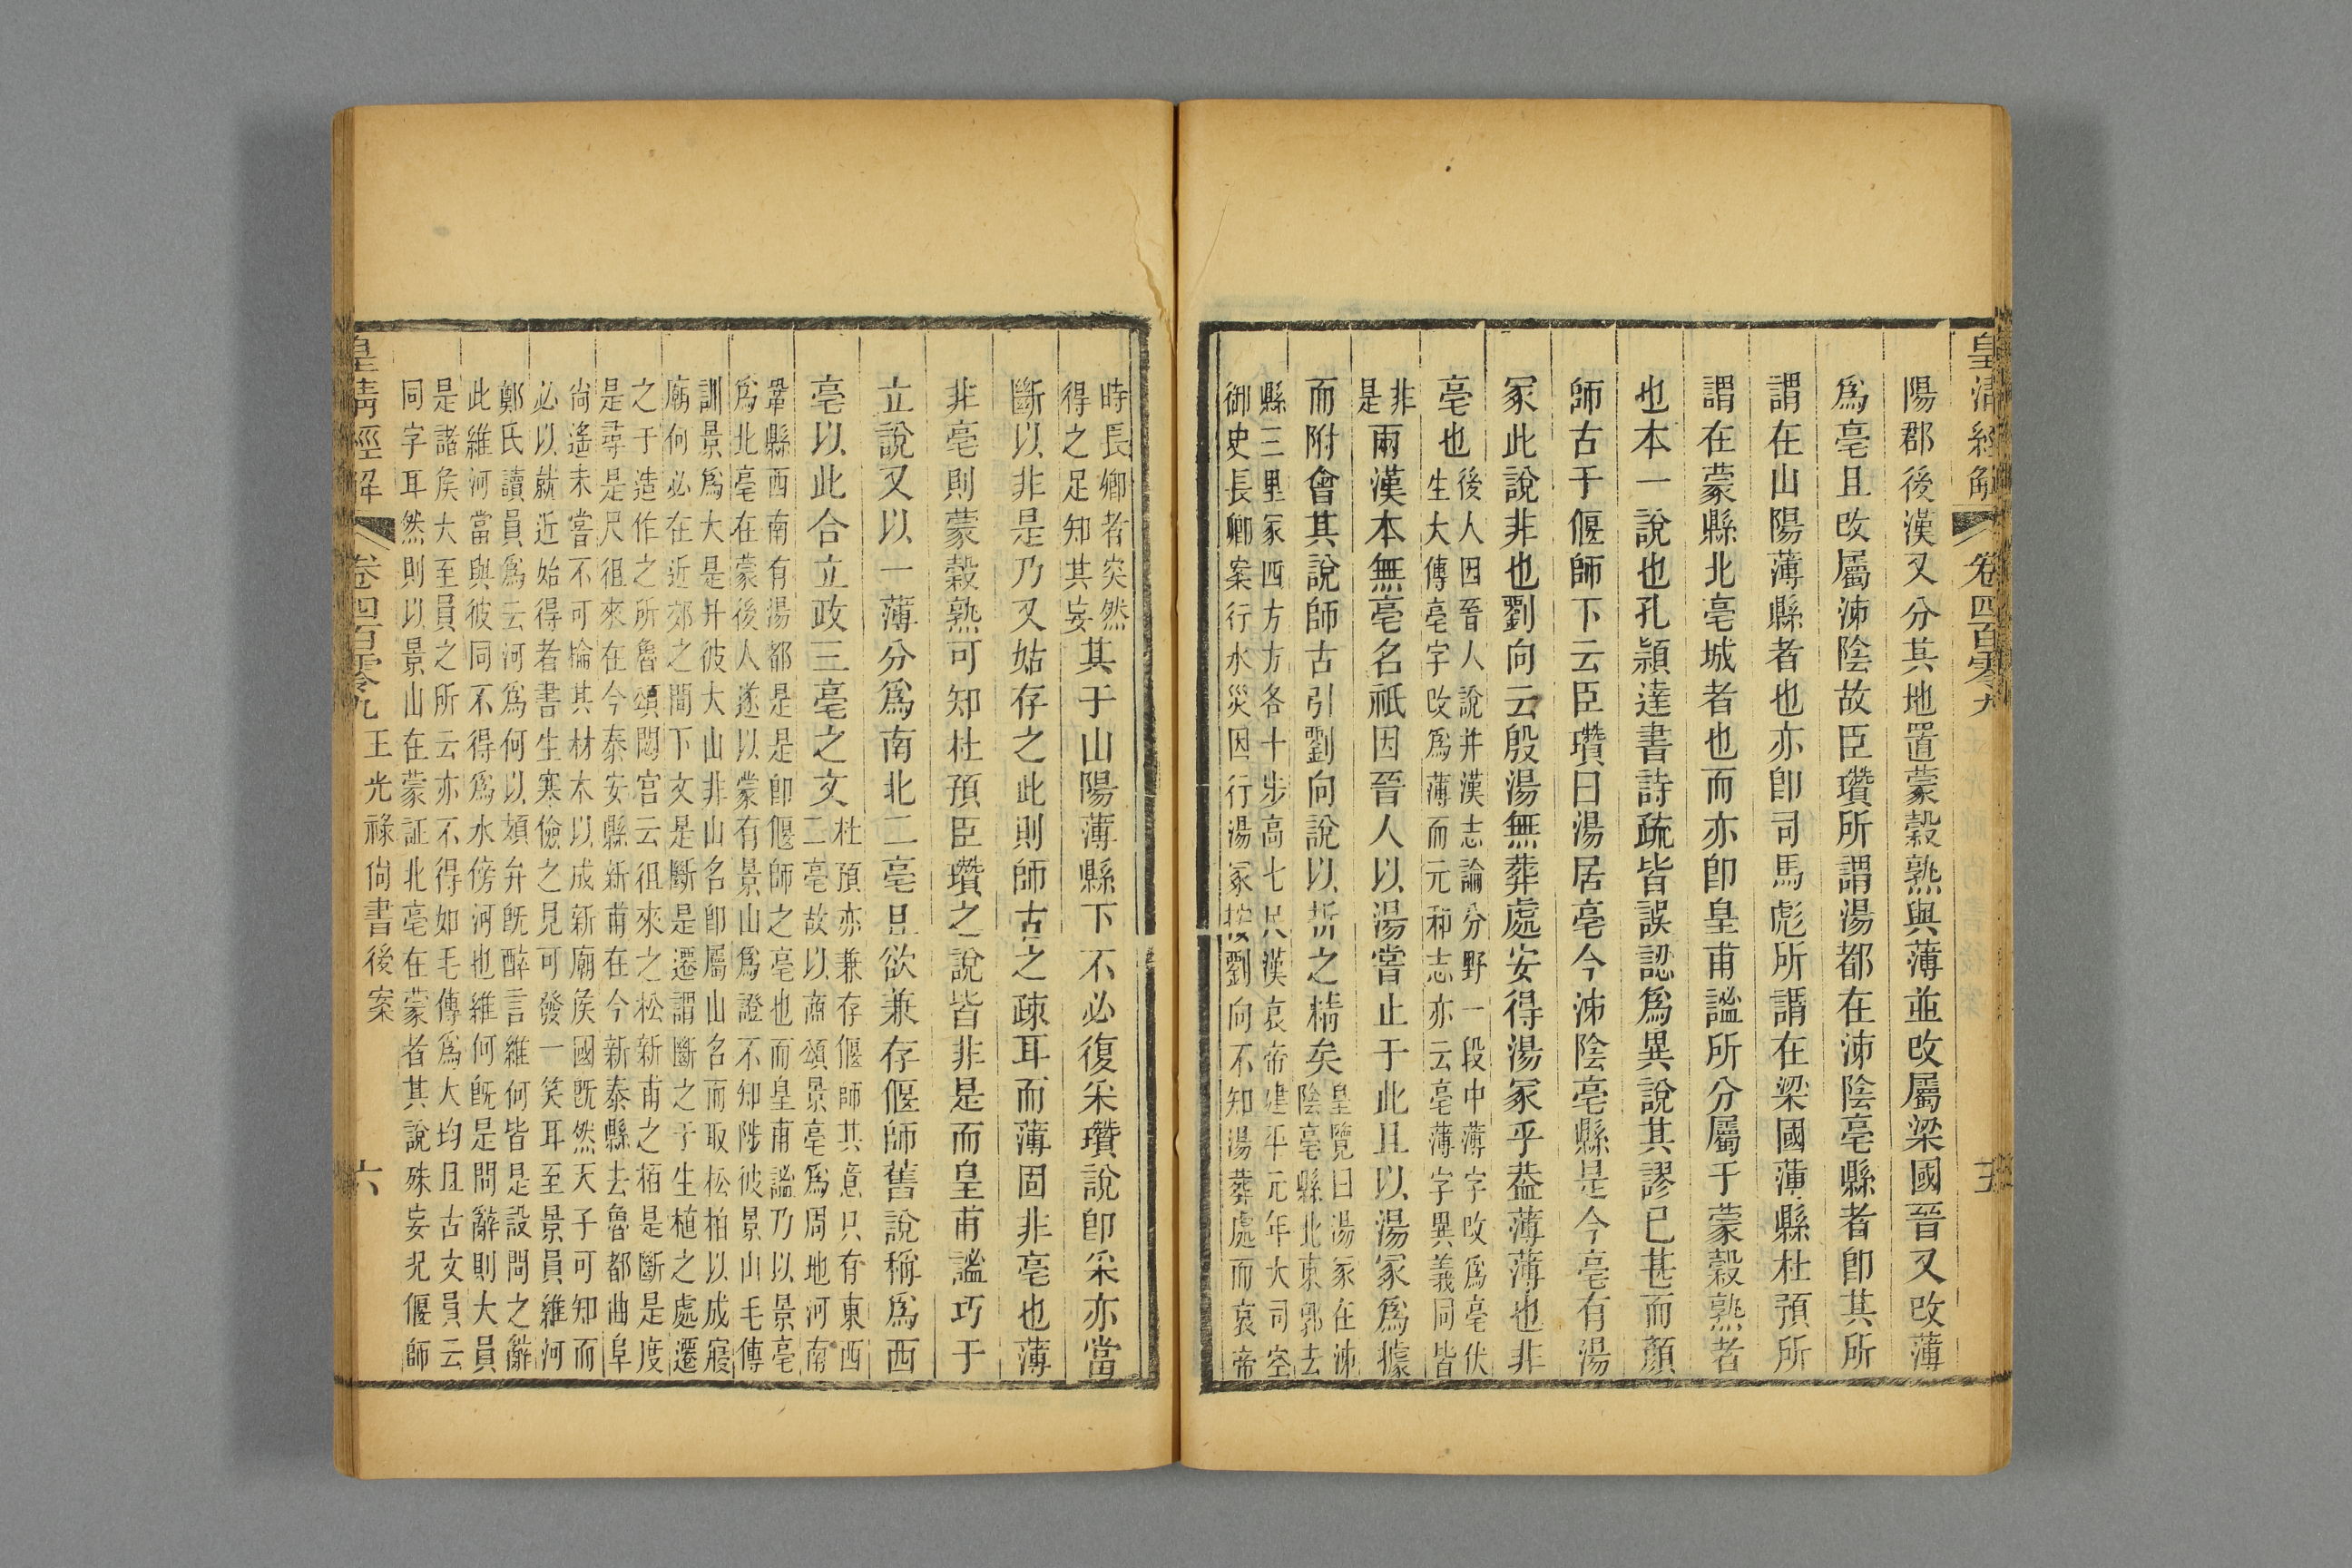 皇清經解
卷四百零九
五
陽郡後漢又分其地置蒙穀熟與薄並改屬梁國晉又改薄
爲亳且改屬泲陰故臣瓚所謂湯都在泲陰亳縣者卽其所
謂在山陽薄縣者也亦卽司馬彪所謂在梁國薄縣杜預所
謂在蒙縣北亳城者也而亦卽皇甫謐所分屬于蒙穀熟者
也本一說也孔穎達書詩疏皆誤認爲異說其謬已甚而顏
師古于偃師下云臣瓚曰湯居亳今泲陰亳縣是今亳有湯
冢此說非也劉向云殷湯無葬處安得湯冢乎葢薄薄也非
亳也
後人因晉人說并漢志論分野一段中薄字改爲亳伏
生大傳亳字改爲薄而元和志亦云亳薄字異義同皆
非
是
兩漢本無亳名祇因晉人以湯嘗止于此且以湯冢爲據
而附會其說師古引劉向說以折之精矣
皇覽曰湯冢在泲
陰亳縣北東郭去
縣三里冢四方方各十步高七尺漢哀帝建平元年大司空
御史長卿案行水災因行湯冢按劉向不知湯葬處而哀帝
時長卿者突然
得之足知其妄
其于山陽薄縣下不必復采瓚說卽采亦當
斷以非是乃又姑存之此則師古之疎耳而薄固非亳也薄
非亳則蒙榖熟可知杜預臣瓚之說皆非是而皇甫謐巧于
立說又以一薄分爲南北二亳且欲兼存偃師舊說稱爲西
亳以此合立政三亳之文
杜預亦兼存偃師其意只有東西
二亳故以商頌景亳爲周地河南
鞏縣西南有湯都是是卽偃師之亳也而皇甫謐乃以景亳
爲北亳在蒙後人遂以蒙有景山爲證不知陟彼景山毛傳
訓景爲大是升彼大山非山名卽屬山名而取松柏以成寢
廟何必在近郊之間下文是斷是遷謂斷之于生植之處遷
之于造作之所魯頌閟宮云徂來之松新甫之栢是斷是度
是尋是尺徂來在今泰安縣新甫在今新泰縣去魯都曲阜
尙遙未嘗不可掄其材木以成新廟矦國旣然天子可知而
必以就近始得者書生寒儉之見可發一笑耳至景員維河
鄭氏讀員爲云河爲何以頍弁旣醉言維何皆是設問之辭
此維河當與彼同不得爲水傍河也維何旣是問辭則大員
是諸矦大至員之所云亦不得如毛傳爲大均且古文員云
同字耳然則以景山在蒙証北亳在蒙者其說殊妄況偃師
皇清經解
卷四百零九
王光祿尙書後案
六